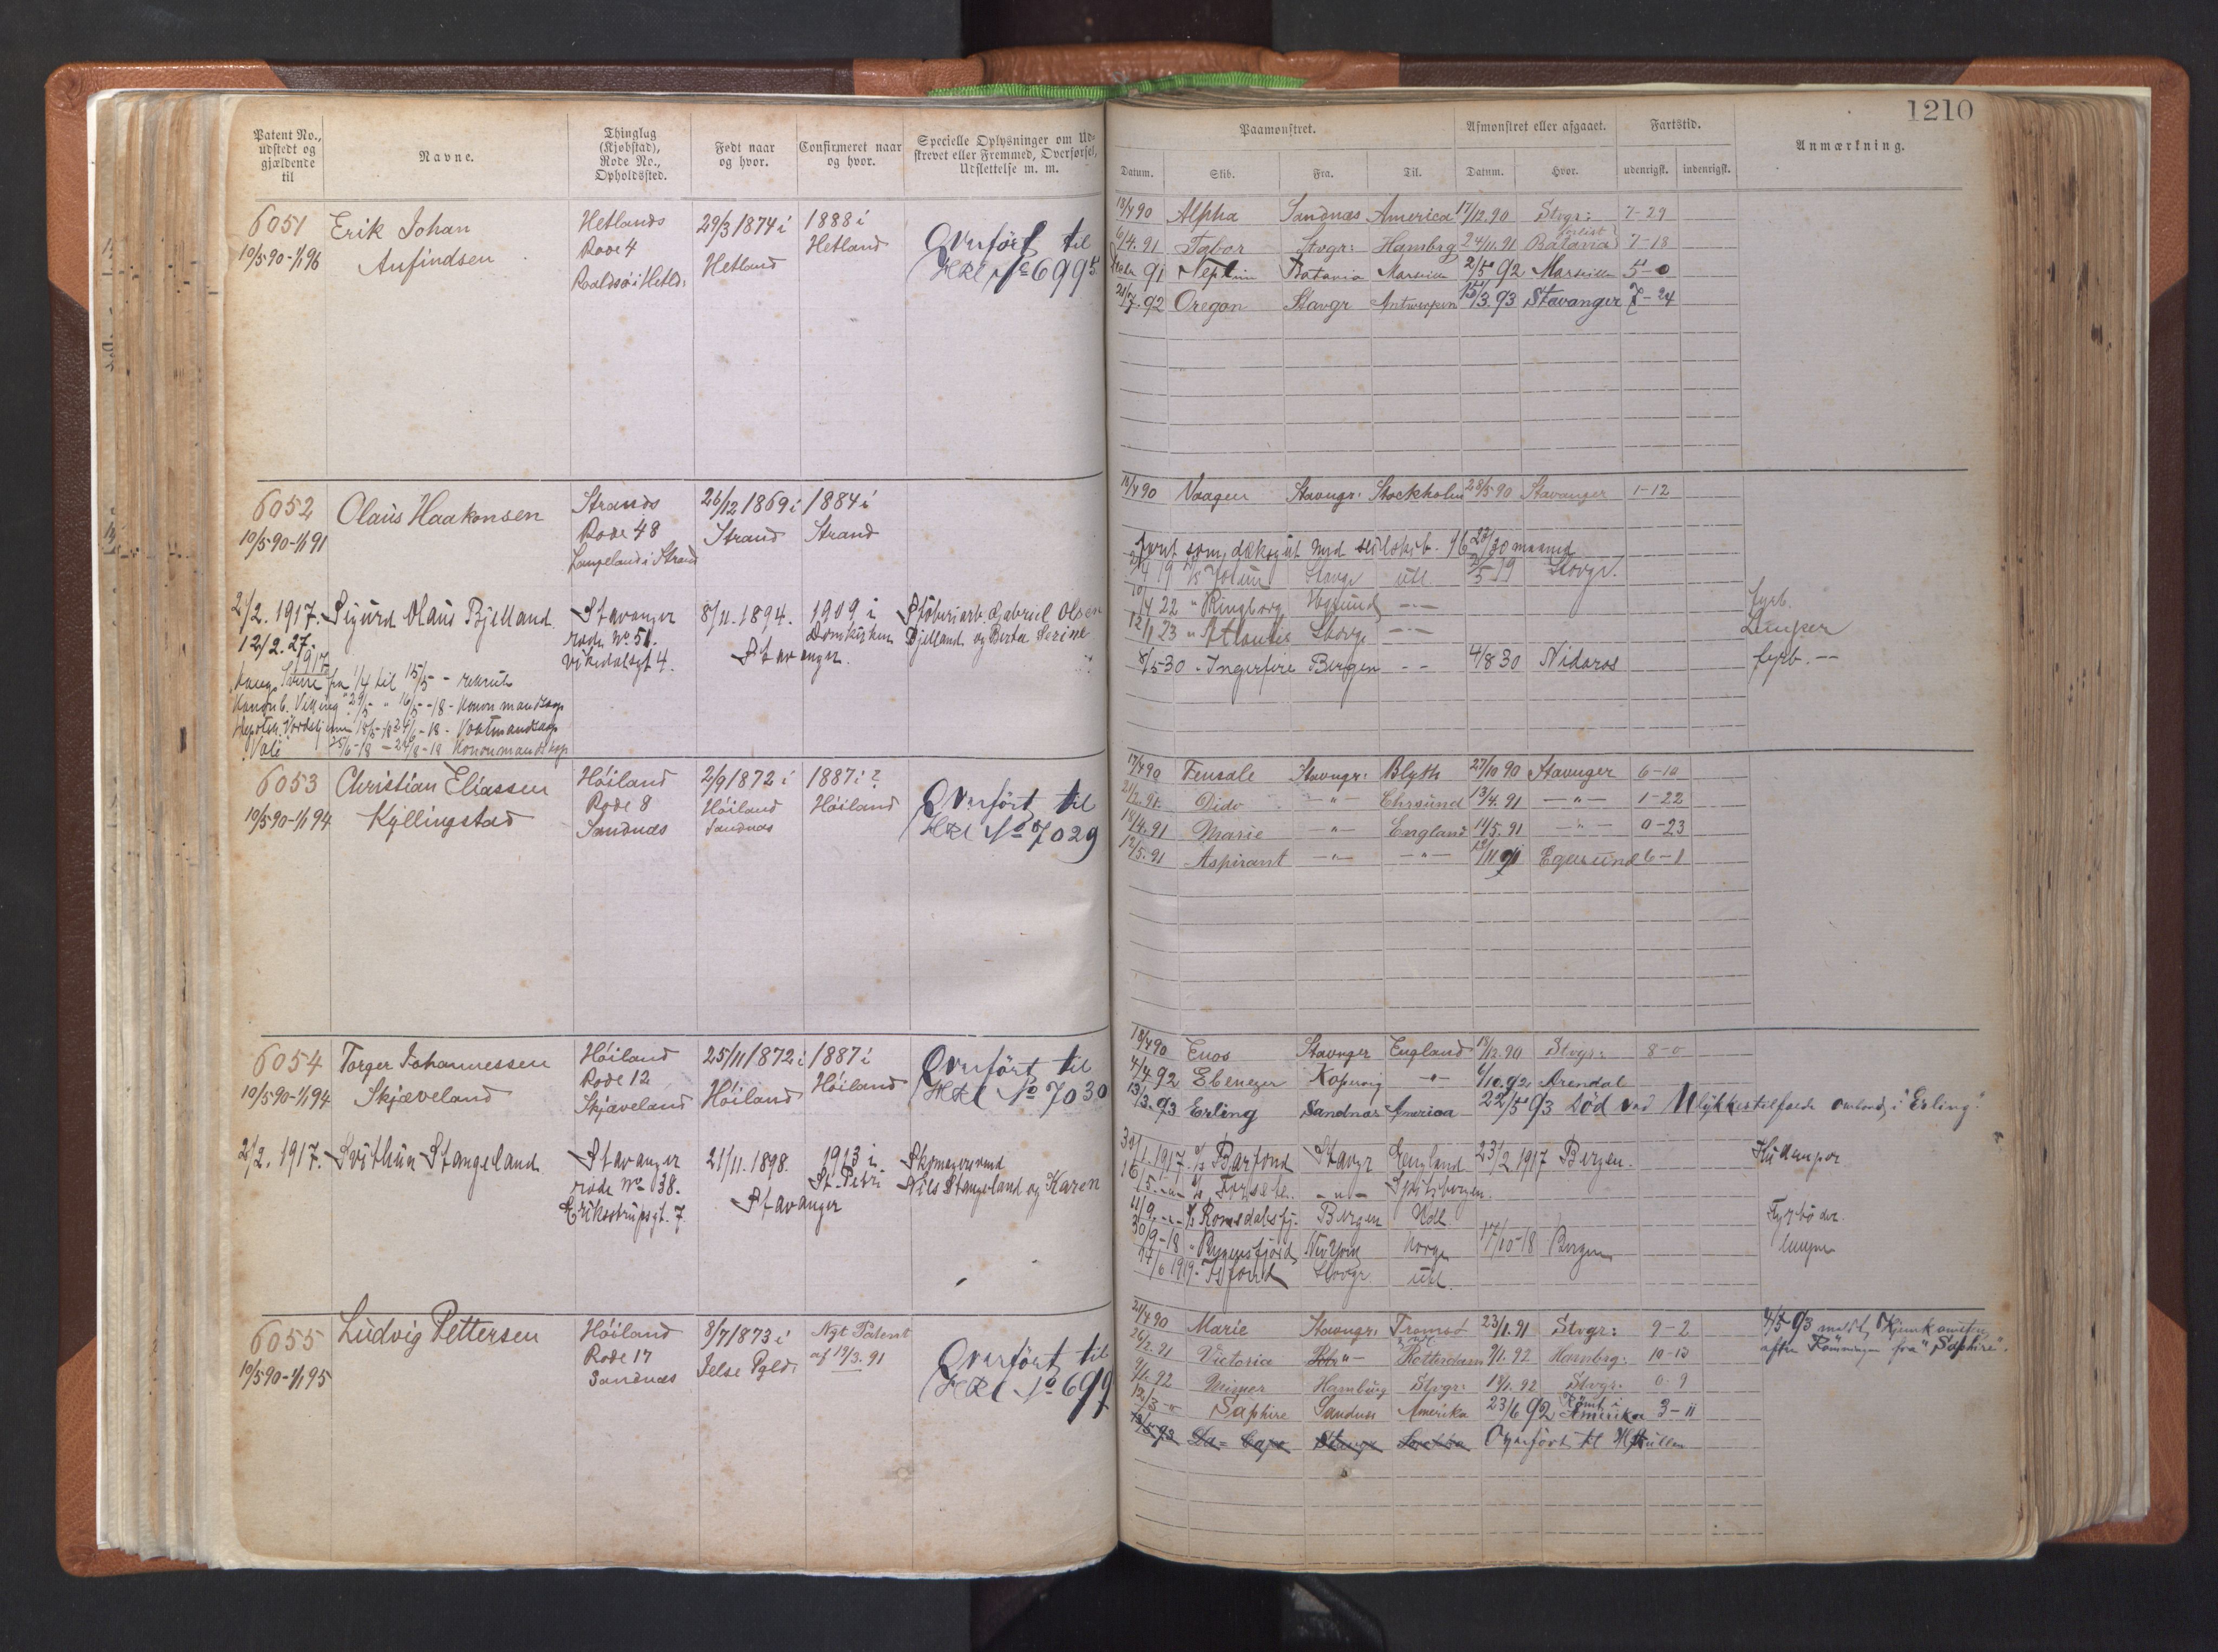 1210
Patent No., udstedt og gjældende til
Navne.
Thinglag (Kjøbstad), Rode No., Opholdssted.
Født naar og hvor.
Confirmeret naar og hvor.
Specielle Oplysninger om Udskrevet eller Fremmed, Overførsel, Udslettelse m. m.
Paamønstret.
Afmønstret eller afgaaet.
Fartstid.
Anmærkning.
Datum. Skib. Fra. Til. Datum. Hvor. udenrigsk. indenrigsk.
6051 Erik Johan Hetlands 29/3 1874 i 1888 i Overført til
10/5 90-1/1 96 Anfindsen Rode 4 Hetland Hetland HRl No 6995
Roaldsø i Hetld:
18/4 90 Alpha Sandnæs America 17/12.90 Stvgr: 7-29
6/4.91 Tabor Stvgr: Hambrg 24/11.91 Batavia 7-18
91 Neptun Batavia Marseille 2/5 92 Marseille 5-0
21/7.92 Oregon Stavgr Antwerpen 15/3.93 Stavanger 7-24
6052 Olaus Haakonsen Strands 26/12 1869 i 1884 i
10/5 90-1/1 91 Rode 48 Strand Strand
Langeland i Strand
18/4 90 Vaagen Stavngr: Stockholm 28/5 90 Stavanger 1-12
2/2. 1917. Sigurd Olaus Bjelland. Stavanger 8/11.1894. 1909 i Støberiarb. Gabriel Olsen
12/2.27. rode No 51. Stavanger. Domkirken Bjelland og Berta Serine
Vikedalsgt 4.
faret som dæksgut med seilskib. 16 22/30 maaned
19 Jotun Stavgr utl. 5 19 Stavgr.
22 " Ringborg fyrb.
12/1 23 " Atlantic Stavgr Lemper
8/5 30 - Ingerfire Bergen - - 4/8 30 Nidaros fyrb. -
1/4 til 15/5 - rekrut
Kanonb. Viking 16/5 - 18 - Kanonmandskap
6053 Christian Eliassen Høiland 2/9 1872 i 1887 i ? Overført til
10/5 90-1/1 94 Kyllingstad Rode 8 Høiland Høiland HRl No 7029
Sandnæs Sandnæs
17/4 90 Fensale Stavngr: Blyth 27/10 90 Stavnger 6-10
21/2.91. Dido -"- Ehrsund 13/4.91 -"- 1-22
18/4.91 Marie -"- England 11/5.91 -"- 0-23
12/5.91 Aspirant -"- -"- 12/11 91 Egersund 6-1
6054 Torger Johannessen Høiland 25/11 1872 i 1887 i Overført til
10/5 90-1/1 94 Skjæveland Rode 12 Høiland Høiland HRl No 7030
Skjæveland
18/4 90 Enos Stavnger England 18/12.90 Stvgr: 8-0
4/4 92 Ebenezer Kopervig -"- 6/10.92 Arendal
13/3.93 Erling Sandnæs America 22/5 93 Død ved Ulykkestilfælde ombord i "Erling".
2/2. 1917. Svithun Stangeland. Stavanger 21/11.1898. 1913 i Skomagersvend
rode No 38. Stavanger St. Petri Nils Stangeland og Karen
Eriksstrupsgt. 7
30/1.1917. Barfond Stavgr England 23/2 1917 Bergen.
Forsete. -"- Spitsbergen.
11/9. Romsdalsfj. Bergen Udl. Fyrbøder.
30/9-18 " Bergensfjord New York Norge 17/10-18 Bergen lemper
17/6 1919. Isfond Stavgr. utl.
6055 Ludvig Pettersen Høiland 8/7 1873 i Nyt Patent Overført til
10/5 90-1/1 95 Rode 17 Jelse Pgld: af 19/3.91 HRl No 699
Sandnæs
21/4 90 Marie Stavngr: Tromsø 23/1.91 Stvgr: 9-2
26/2.91 Victoria -"- Rotterdam 9/1.92 Hambrg: 10-13
9/1.92 Mimer Hamburg Stvgr: 18/1.92 Stvgr: 0-9
12/3-" Saphire Sandnæs Amerika 23/6 92 Rømt i Amerika 3-11
12/5 93 Overført til H Rullen
4/5 93 meldt Hjemkomsten
efter Rømningen fra "Saphire".